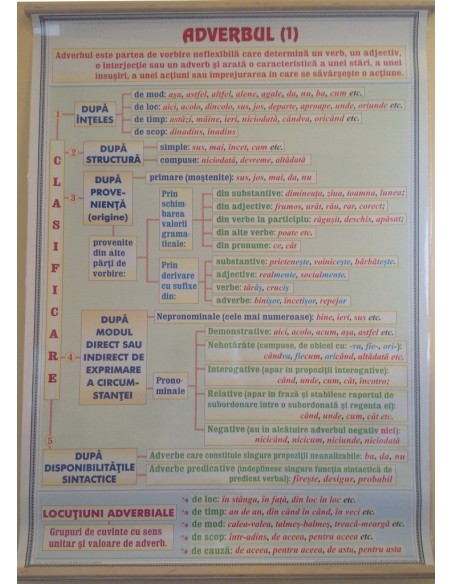 ADVERBUL (1)
Adverbul este partea de vorbire neflexibilă care determină un verb, un adjectiv,
o interjecție sau un adverb și arată o caracteristică a unei stări, a unei
însușiri, a unei acțiuni sau împrejurarea în care se săvârșește o acțiune.
CLASIFICARE
1
DUPĂ
ÎNȚELES
de mod: așa, astfel, altfel, alene, agale, da, nu, ba, cum etc.
de loc: aici, acolo, dincolo, sus, jos, departe, aproape, unde, oriunde etc.
de timp: astăzi, mâine, ieri, niciodată, cândva, oricând etc.
de scop: dinadins, înadins
2
DUPĂ
STRUCTURĂ
simple: sus, mai, încet, cam etc.
compuse: niciodată, devreme, altădată
3
DUPĂ
PROVE-
NIENȚĂ
(origine)
primare (moștenite): sus, jos, mai, da, nu
provenite
din alte
părți de
vorbire:
Prin
schim-
barea
valorii
grama-
ticale:
din substantive: dimineața, ziua, toamna, lunea;
din adjective: frumos, urât, rău, rar, corect;
din verbe la participiu: răgușit, deschis, apăsat;
din alte verbe: poate etc.
din pronume: ce, cât
Prin
derivare
cu sufixe
din:
substantive: prietenește, voinicește, bărbătește.
adjective: realmente, socialmente.
verbe: târâș, cruciș
adverbe: binișor, încetișor, repejor
4
DUPĂ
MODUL
DIRECT SAU
INDIRECT DE
EXPRIMARE
A CIRCUM-
STANȚEI
Nepronominale (cele mai numeroase): bine, ieri, sus etc.
Prono-
minale
Demonstrative: aici, acolo, acum, așa, astfel etc.
Nehotărâte (compuse, de obicei cu: -va, fie-, ori-):
cândva, fiecum, oricând, altădată etc.
Interogative (apar în propoziții interogative):
când, unde, cum, cât, încotro;
Relative (apar în frază și stabilesc raportul de
subordonare între o subordonată și regenta ei):
când, unde, cum, cât etc.
Negative (au în alcătuire adverbul negativ nici):
nicicând, nicicum, niciunde, niciodată
5
DUPĂ
DISPONIBILITĂȚILE
SINTACTICE
Adverbe care constituie singure propoziții neanalizabile: ba, da, nu
Adverbe predicative (îndeplinesc singure funcția sintactică de
predicat verbal): firește, desigur, probabil
LOCUȚIUNI ADVERBIALE
Grupuri de cuvinte cu sens
unitar și valoare de adverb.
de loc: în stânga, în față, din loc în loc etc.
de timp: an de an, din când în când, în veci etc.
de mod: calea-valea, talmeș-balmeș, treacă-meargă etc.
de scop: într-adins, de aceea, pentru aceea etc.
de cauză: de aceea, pentru aceea, de asta, pentru asta